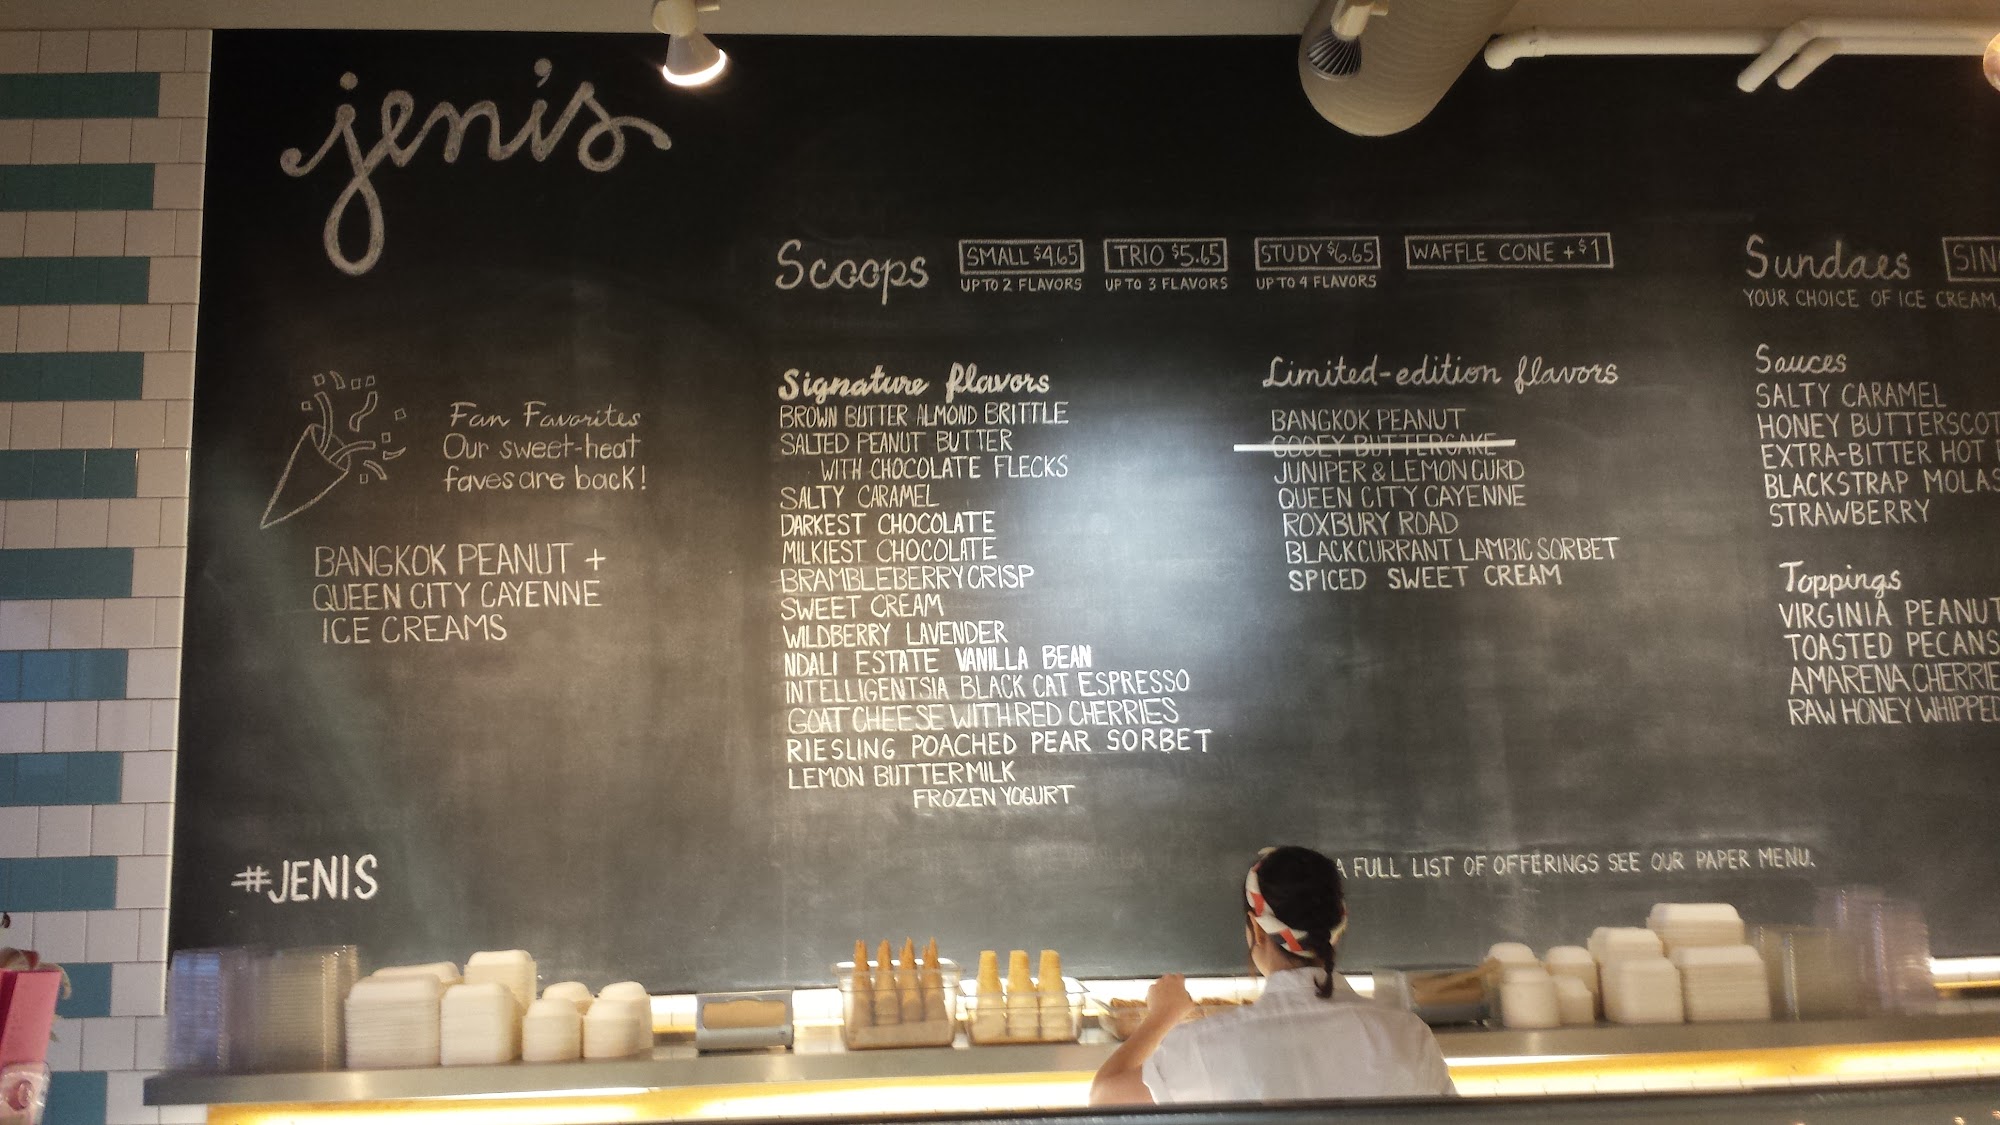 jeni's
Fan Favorites
Our sweet-heat
faves are back!
BANGKOK PEANUT +
QUEEN CITY CAYENNE
ICE CREAMS
#JENIS
Scoops
SMALL $4.65
UP TO 2 FLAVORS
TRIO $5.65
UP TO 3 FLAVORS
STUDY $6.65
UP TO 4 FLAVORS
WAFFLE CONE +$1
Signature flavors
BROWN BUTTER ALMOND BRITTLE
SALTED PEANUT BUTTER
WITH CHOCOLATE FLECKS
SALTY CARAMEL
DARKEST CHOCOLATE
MILKIEST CHOCOLATE
BRAMBLEBERRY CRISP
SWEET CREAM
WILDBERRY LAVENDER
NDALI ESTATE VANILLA BEAN
INTELLIGENTSIA BLACK CAT ESPRESSO
GOAT CHEESE WITH RED CHERRIES
RIESLING POACHED PEAR SORBET
LEMON BUTTERMILK
FROZEN YOGURT
Limited-edition flavors
BANGKOK PEANUT
GOOEY BUTTERCAKE
JUNIPER & LEMON CURD
QUEEN CITY CAYENNE
ROXBURY ROAD
BLACKCURRANT LAMBIC SORBET
SPICED SWEET CREAM
Sundaes
YOUR CHOICE OF ICE CREAM,
Sauces
SALTY CARAMEL
HONEY BUTTERSCOT
EXTRA-BITTER HOT
BLACKSTRAP MOLAS
STRAWBERRY
Toppings
VIRGINIA PEANUT
TOASTED PECANS
AMARENA CHERRIE
RAW HONEY WHIPPED
A FULL LIST OF OFFERINGS SEE OUR PAPER MENU.